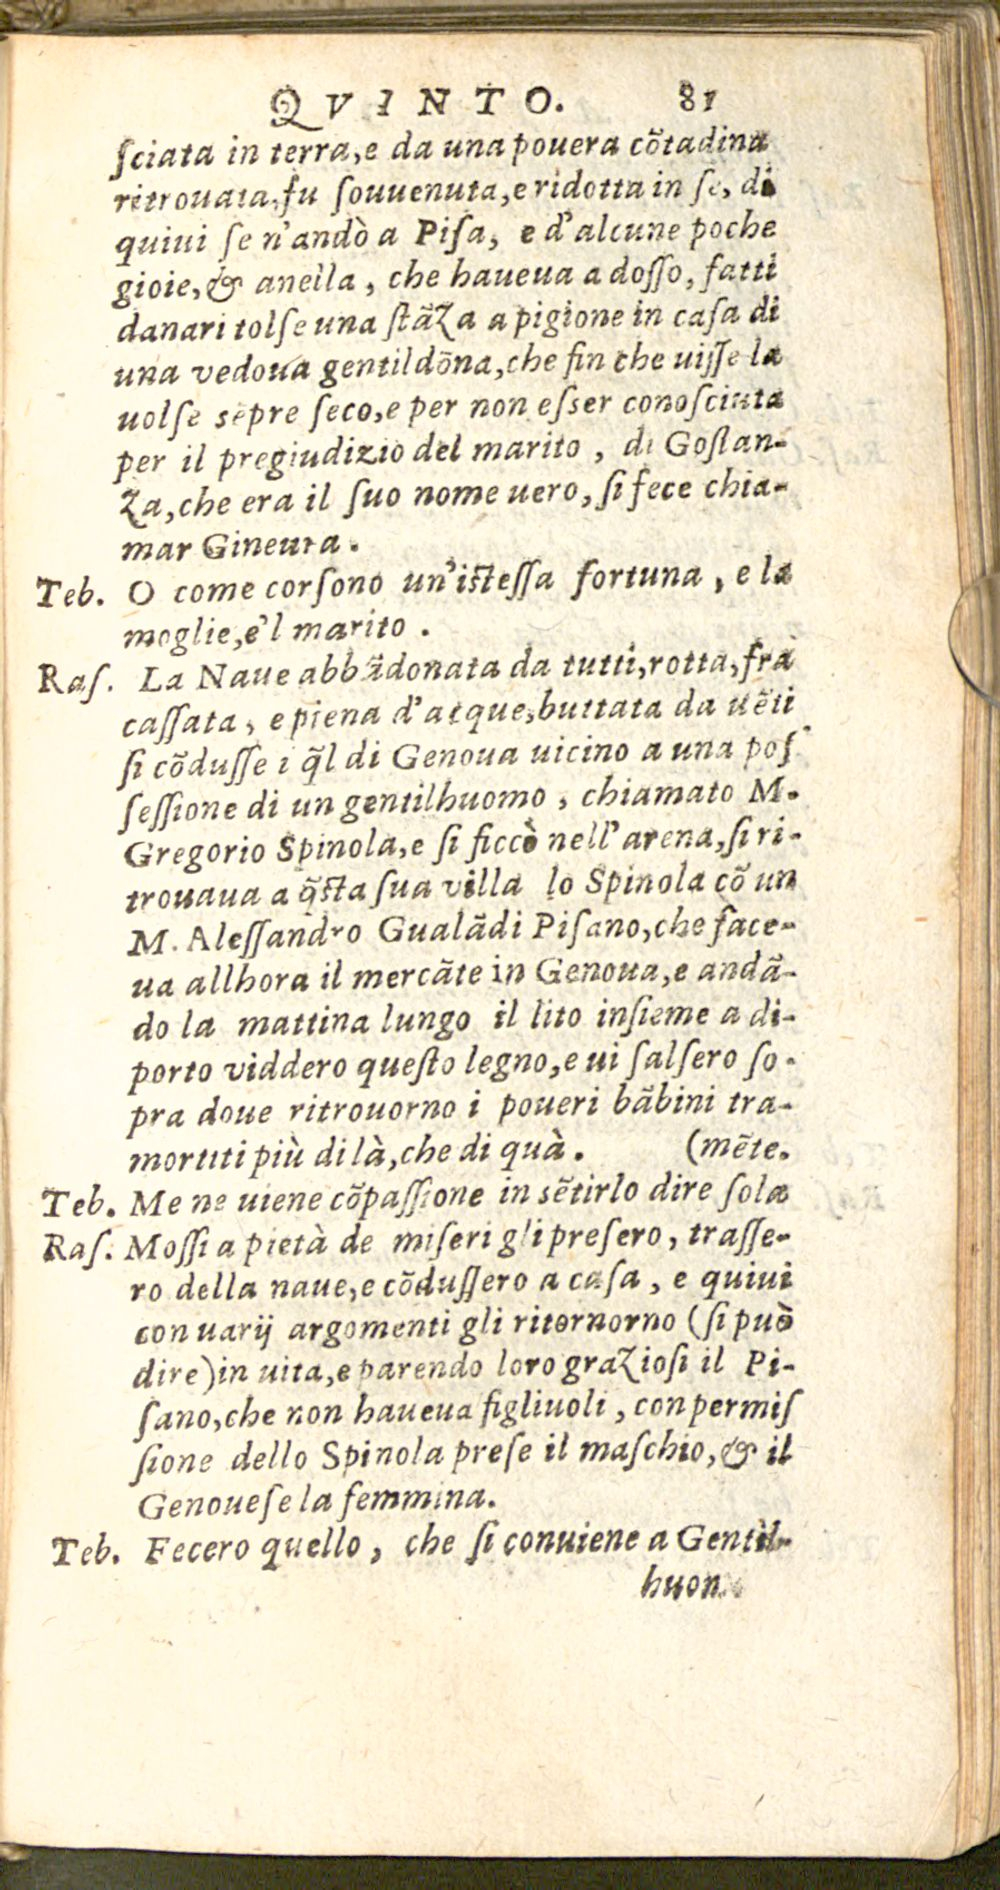 QVINTO. 81
ſciata in terra,e da una pouera cõtadina
ritrouata,fu ſouuenuta,e ridotta in ſe, di
quiui ſe n'andò a Piſa, e d'alcune poche
gioie,& anella, che haueua a doſſo, fatti
danari tolſe una ſtãza a pigione in caſa di
una vedoua gentildõna,che fin che uiſſe la
uolſe sẽpre ſeco,e per non eſser conoſciuta
per il pregiudizio del marito, di Goſtan-
za,che era il ſuo nome uero, ſi fece chia-
mar Gineura.
Teb. O come corſono un'iſteſſa fortuna, e la
moglie,e'l marito.
Raſ. La Naue abbãdonata da tutti,rotta,fra
caſſata, e piena d'acque,buttata da uẽti
ſi cõduſſe i q̃l di Genoua uicino a una poſ
ſeſſione di un gentilhuomo, chiamato M.
Gregorio Spinola,e ſi ficcò nell'arena,ſi ri-
trouaua a q̃ſta ſua villa lo Spinola cõ un
M. Aleſſandro Gualãdi Piſano,che face-
ua allhora il mercãte in Genoua,e andã-
do la mattina lungo il lito inſieme a di-
porto viddero queſto legno,e ui ſalſero ſo-
pra doue ritrouorno i poueri bãbini tra-
mortiti più di là,che di quà. (mẽte.
Teb. Me ne uiene cõpaſſione in sẽtirlo dire ſola
Raſ. Moſſi a pietà de miſeri gli preſero, traſſe-
ro della naue,e cõduſſero a caſa, e quiui
con uarij argomenti gli ritornorno (ſi può
dire)in uita,e parendo loro grazioſi il Pi-
ſano,che non haueua figliuoli, con permiſ
ſione dello Spinola preſe il maſchio,& il
Genoueſe la femmina.
Teb. Fecero quello, che ſi conuiene a Gentil-
huon